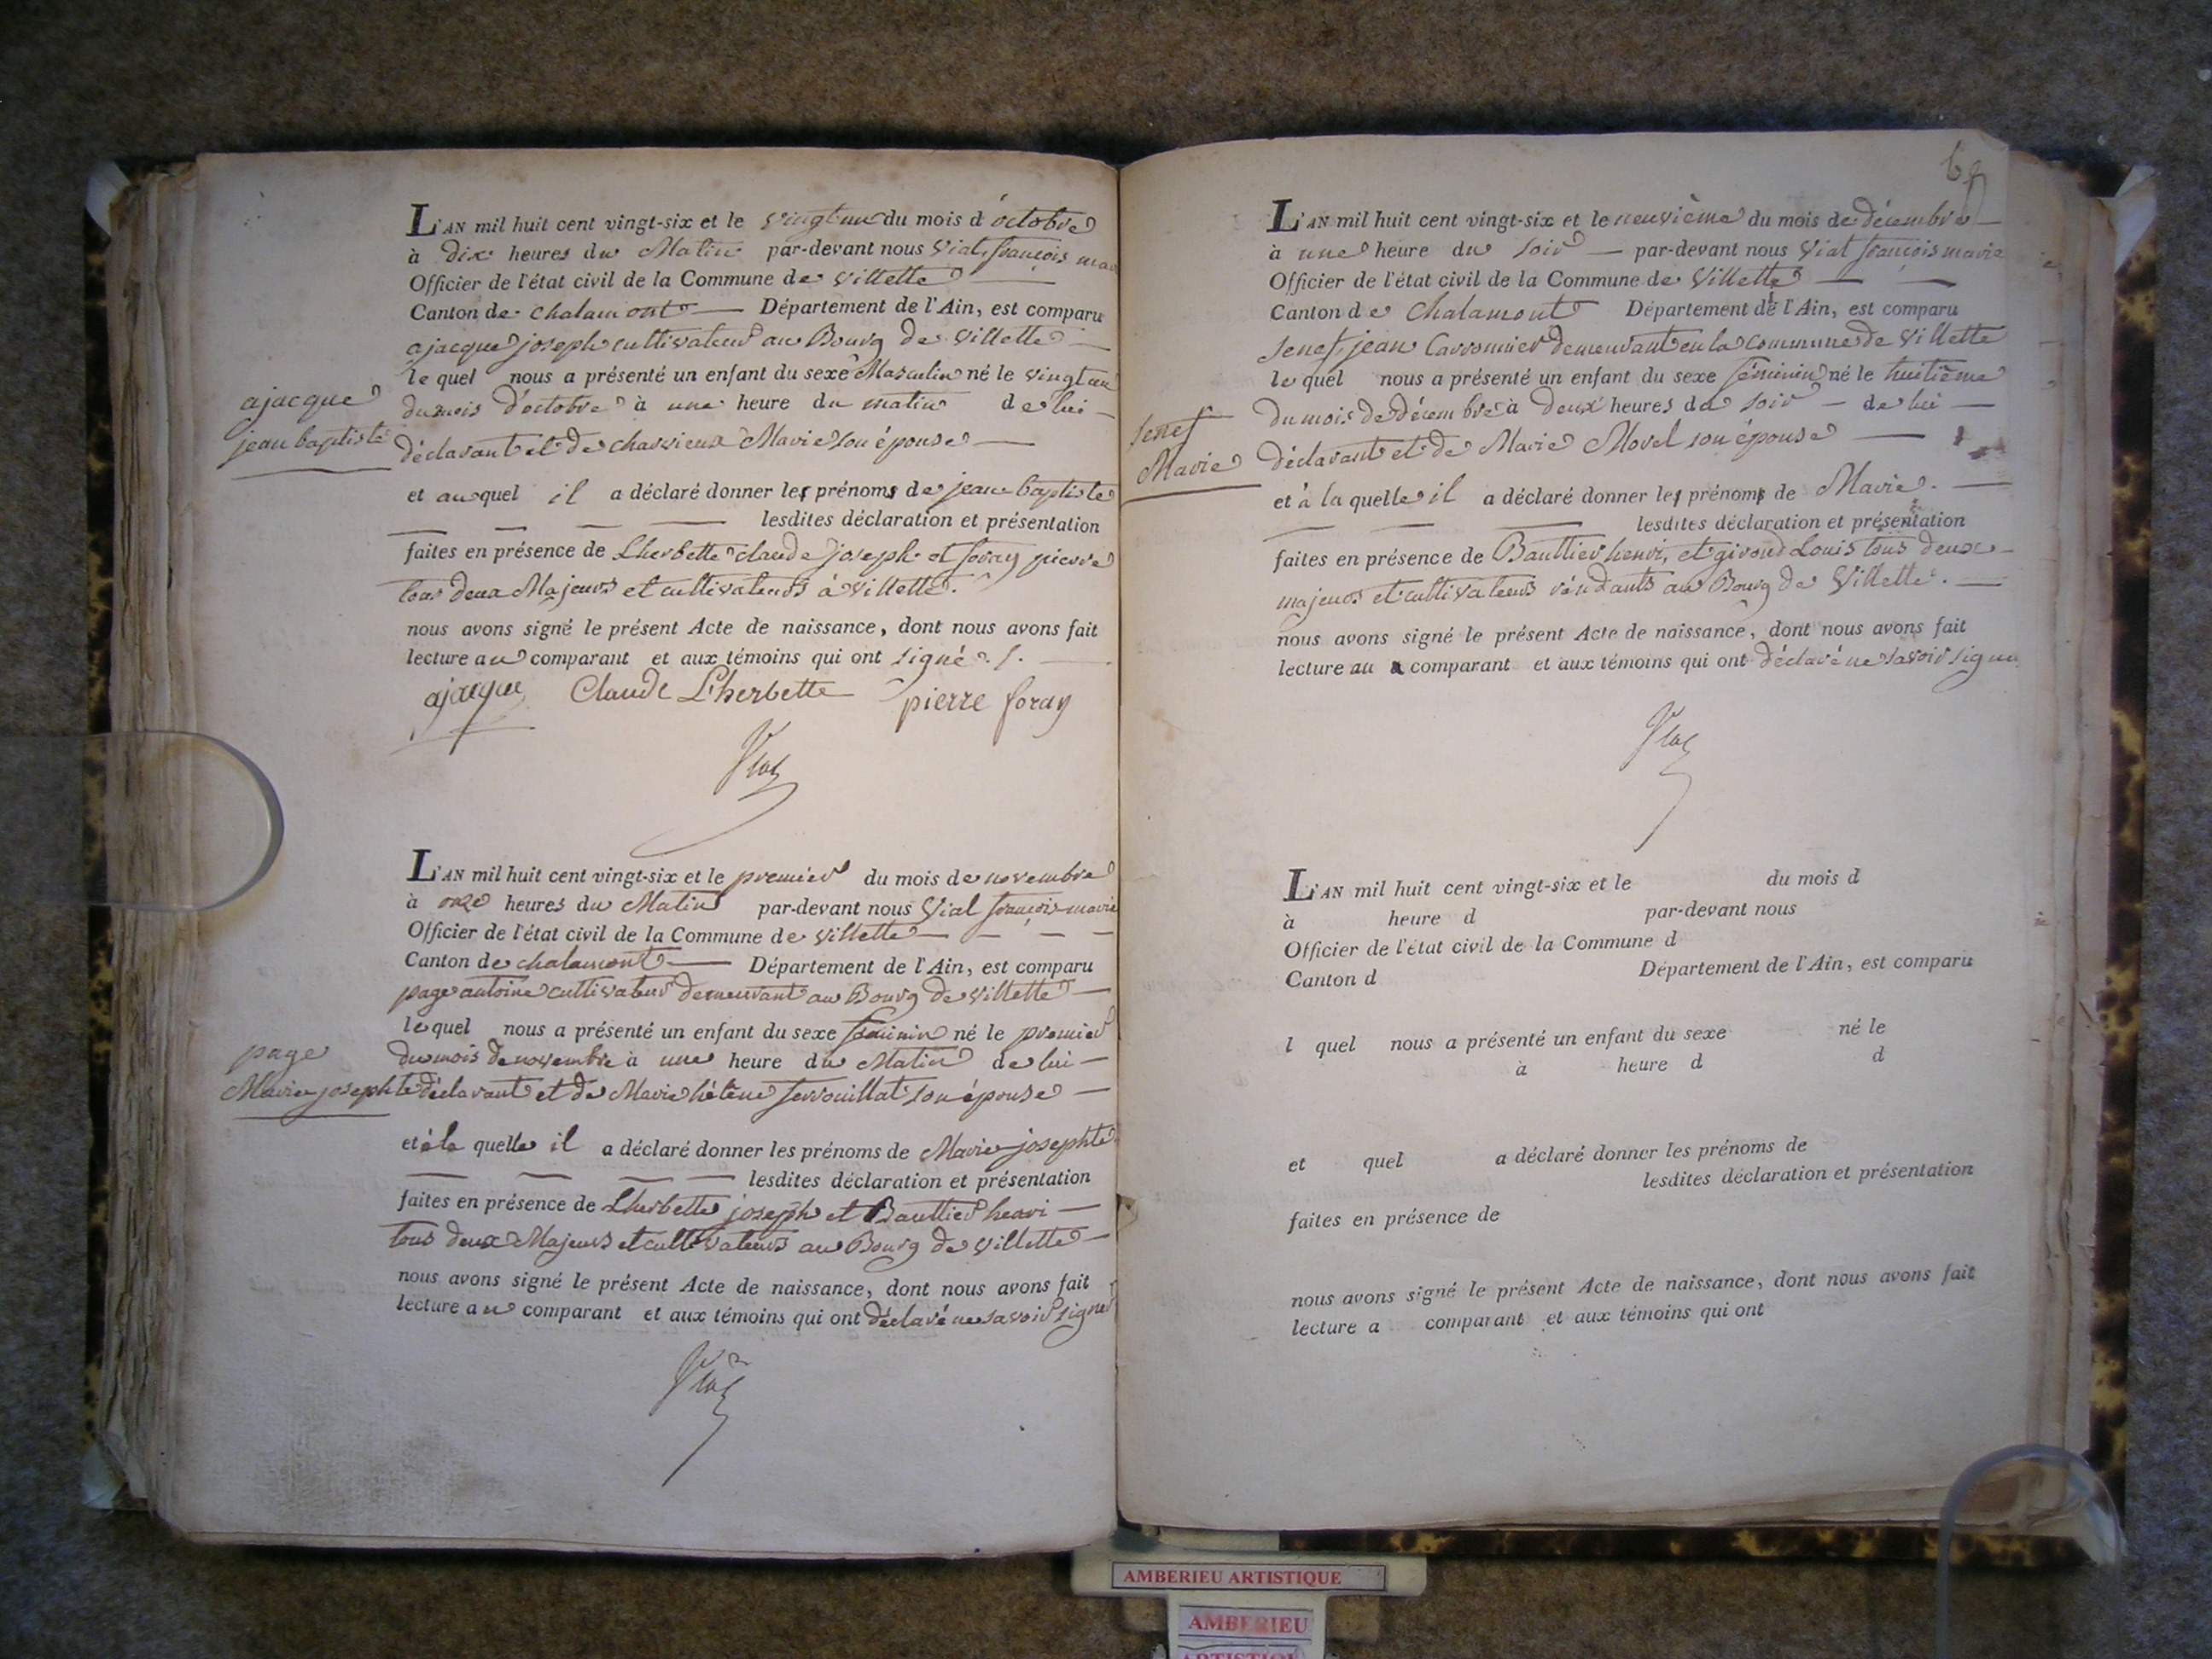 ajacque
jean baptiste
L'AN mil huit cent vingt-six et le vingt un du mois d'octobre
à dix heures du Matin par-devant nous Vial, françois mar
Officier de l'état civil de la Commune de Villette
Canton de chalamont Département de l'Ain, est comparu
ajacque joseph cultivateur au Bourg de Villette
le quel nous a présenté un enfant du sexe Masculin né le vingt un
du mois d'octobre à une heure du matin de lui
déclarant et de chassieux Marie son épouse
et au quel il a déclaré donner les prénoms de jean baptiste
lesdites déclaration et présentation
faites en présence de Lherbette claude joseph et foray pierre
tous deux Majeurs et cultivateurs à Villette.
nous avons signé le présent Acte de naissance, dont nous avons fait
lecture au comparant et aux témoins qui ont signé
ajacque Claude L'herbette pierre foray
Vial
page
Marie josephte
L'AN mil huit cent vingt-six et le premier du mois de novembre
à onze heures du Matin par-devant nous Vial françois marie
Officier de l'état civil de la Commune de Villette
Canton de chalamont Département de l'Ain, est comparu
page antoine cultivateur demeurant au Bourg de Villette
lequel nous a présenté un enfant du sexe féminin né le premier
du mois de novembre à une heure du Matin de lui
déclarant et de Marie hélène ferrouillat son épouse
et à la quelle il a déclaré donner les prénoms de Marie josephte
lesdites déclaration et présentation
faites en présence de Lherbette joseph et Bauttier henri
tous deux Majeurs et cultivateurs au Bourg de Villette
nous avons signé le présent Acte de naissance, dont nous avons fait
lecture au comparant et aux témoins qui ont déclaré ne savoir signer
Vial
Senef
Marie
L'AN mil huit cent vingt-six et le neuvième du mois de décembre
à une heure du soir par-devant nous Vial françois marie
Officier de l'état civil de la Commune de Villette
Canton de Chalamont Département de l'Ain, est comparu
Senef, jean Carronnier demeurant en la commune de Villette
le quel nous a présenté un enfant du sexe féminin né le huitième
du mois de décembre à deux heures du soir de lui
déclarant et de Marie Morel son épouse
et à la quelle il a déclaré donner les prénoms de Marie.
lesdites déclaration et présentation
faites en présence de Bauttier henri, et giroud Louis tous deux
majeurs et cultivateurs résidants au Bourg de Villette.
nous avons signé le présent Acte de naissance, dont nous avons fait
lecture au comparant et aux témoins qui ont déclaré ne savoir signer
Vial
L'AN mil huit cent vingt-six et le du mois d
à heure d par-devant nous
Officier de l'état civil de la Commune d
Canton d Département de l'Ain, est comparu
l quel nous a présenté un enfant du sexe né le
à heure d d
et quel a déclaré donner les prénoms de
lesdites déclaration et présentation
faites en présence de
nous avons signé le présent Acte de naissance, dont nous avons fait
lecture a comparant et aux témoins qui ont
AMBERIEU ARTISTIQUE
AMBERIEU
ARTISTIQUE